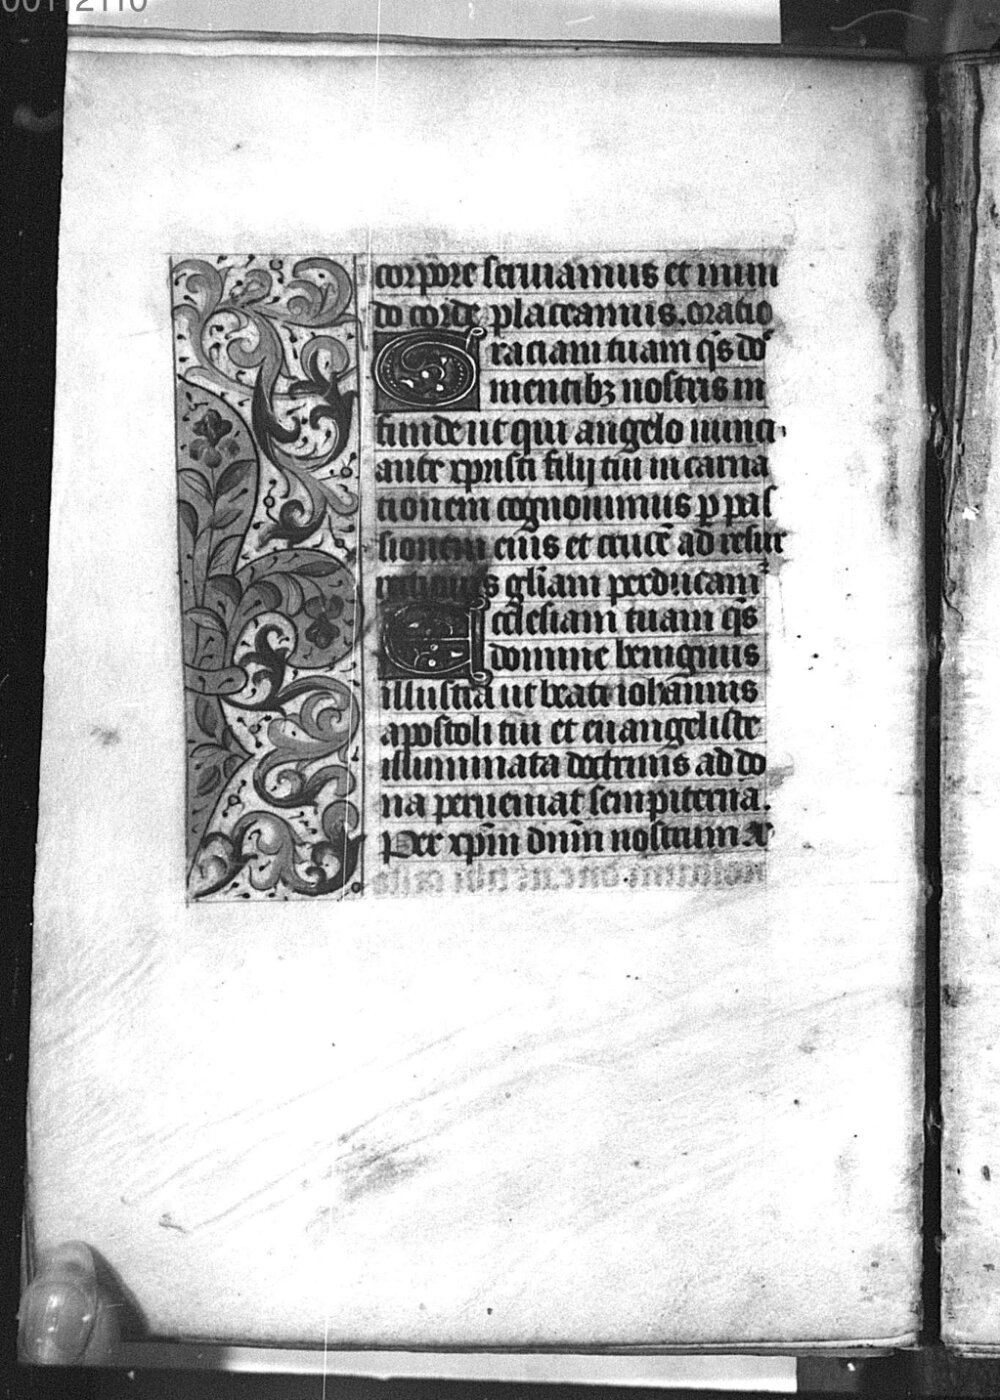 00112110
corpore seruiamus et mun
do corde placeamus. oratio
Graciam tuam q̄s do
mentibꝫ nostris in
funde ut qui angelo nunci
ante xpristi filij tui incarna
tionem cognouimus ꝑ pas
sionem eius et crucē ad resur
rectionis gl̄iam perducam᷑
Ecclesiam tuam q̄s
domine benignus
illustra ut beati iohannis
apostoli tui et euangeliste
illuminata doctrinis ad do
na perueniat sempiterna.
Per xp̄m dn̄m nostrum